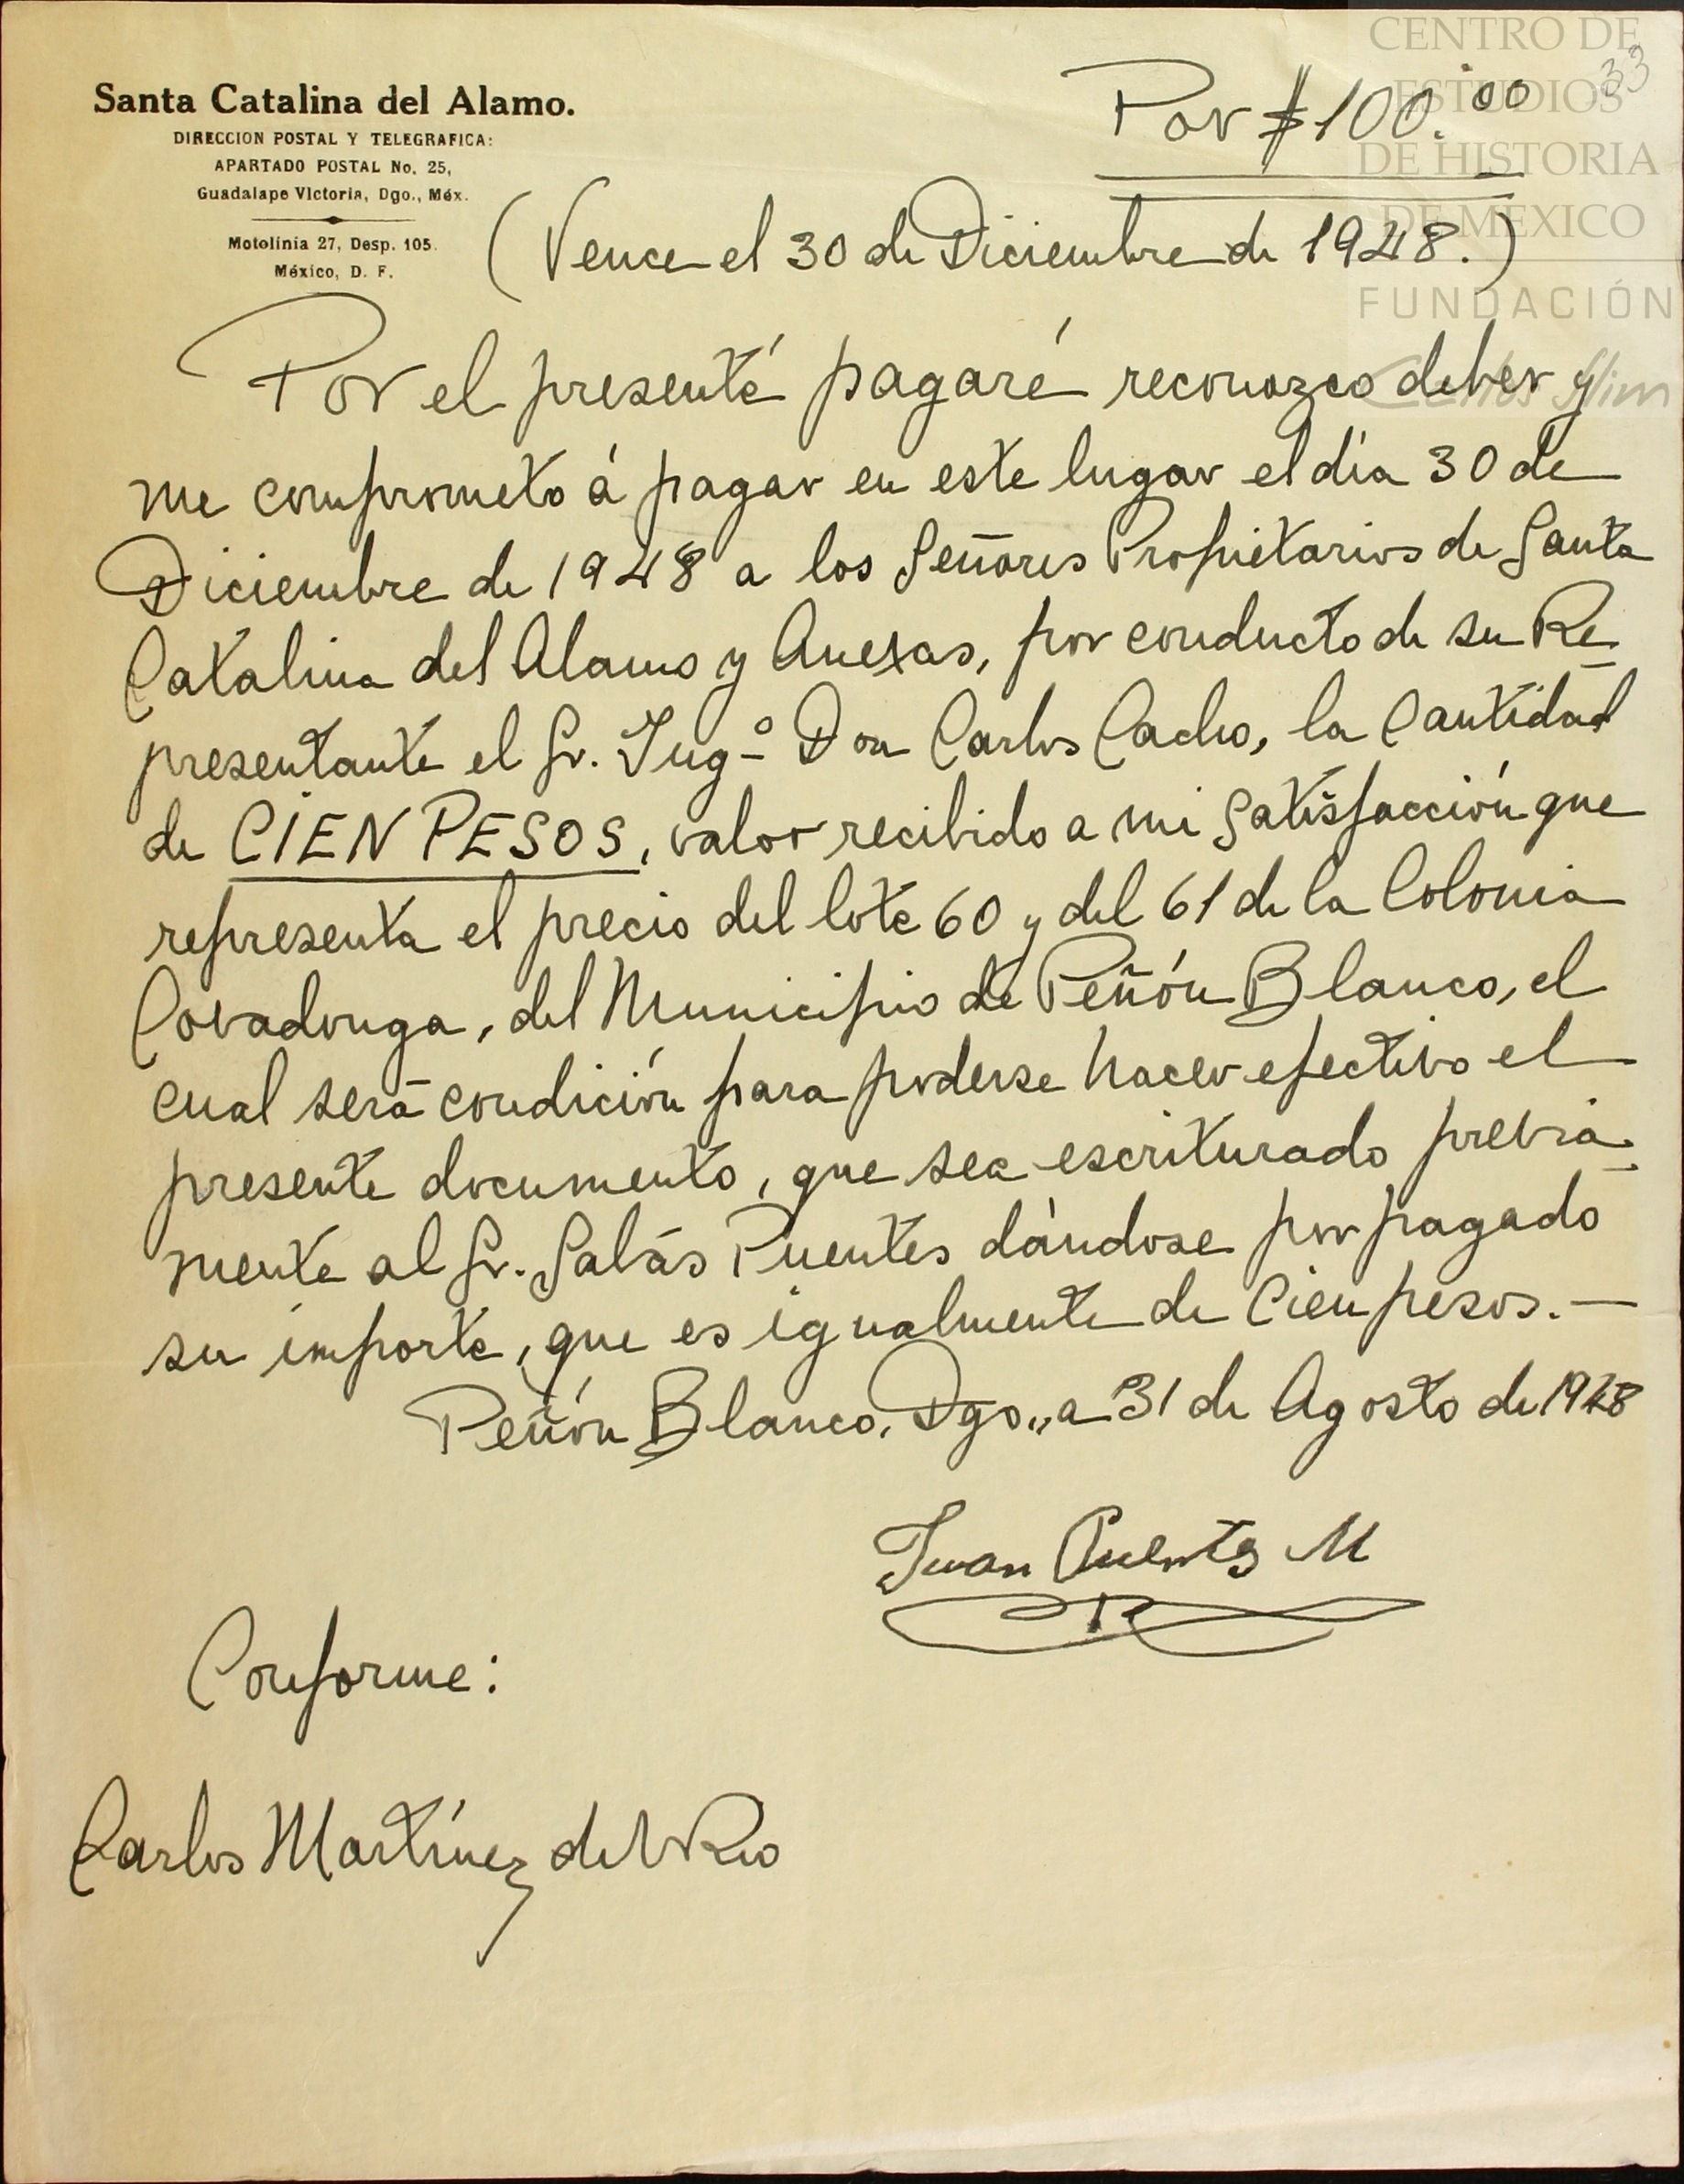 CENTRO DE
ESTUDIOS
DE HISTORIA
DE MEXICO
FUNDACIÓN
Carlos Slim
33
Santa Catalina del Alamo.
DIRECCION POSTAL Y TELEGRAFICA:
APARTADO POSTAL No. 25,
Guadalape Victoria, Dgo., Méx.
Motolinia 27, Desp. 105.
México, D. F.
Por $100.00
(Vence el 30 de Diciembre de 1948.)
Por el presenté pagaré reconozco deber y
me comprometo á pagar en este lugar el día 30 de
Diciembre de 1948 a los Señores Propietarios de Santa
Catalina del Alamo y Anexas, por conducto de su Re-
presentante el Sr. Ingº Don Carlos Cacho, la Cantidad
de CIEN PESOS, valor recibido a mi satisfacción que
representa el precio del lote 60 y del 61 de la Colonia
Covadonga, del Municipio de Peñón Blanco, el
cual será condición para poderse hacer efectivo el
presente documento, que sea escriturado previa-
mente al Sr. Salas Puentes dándose por pagado
su importe, que es igualmente de Cien pesos.—
Peñón Blanco, Dgo., a 31 de Agosto de 1948
Juan Puentes M
Conforme:
Carlos Martínez del Rio